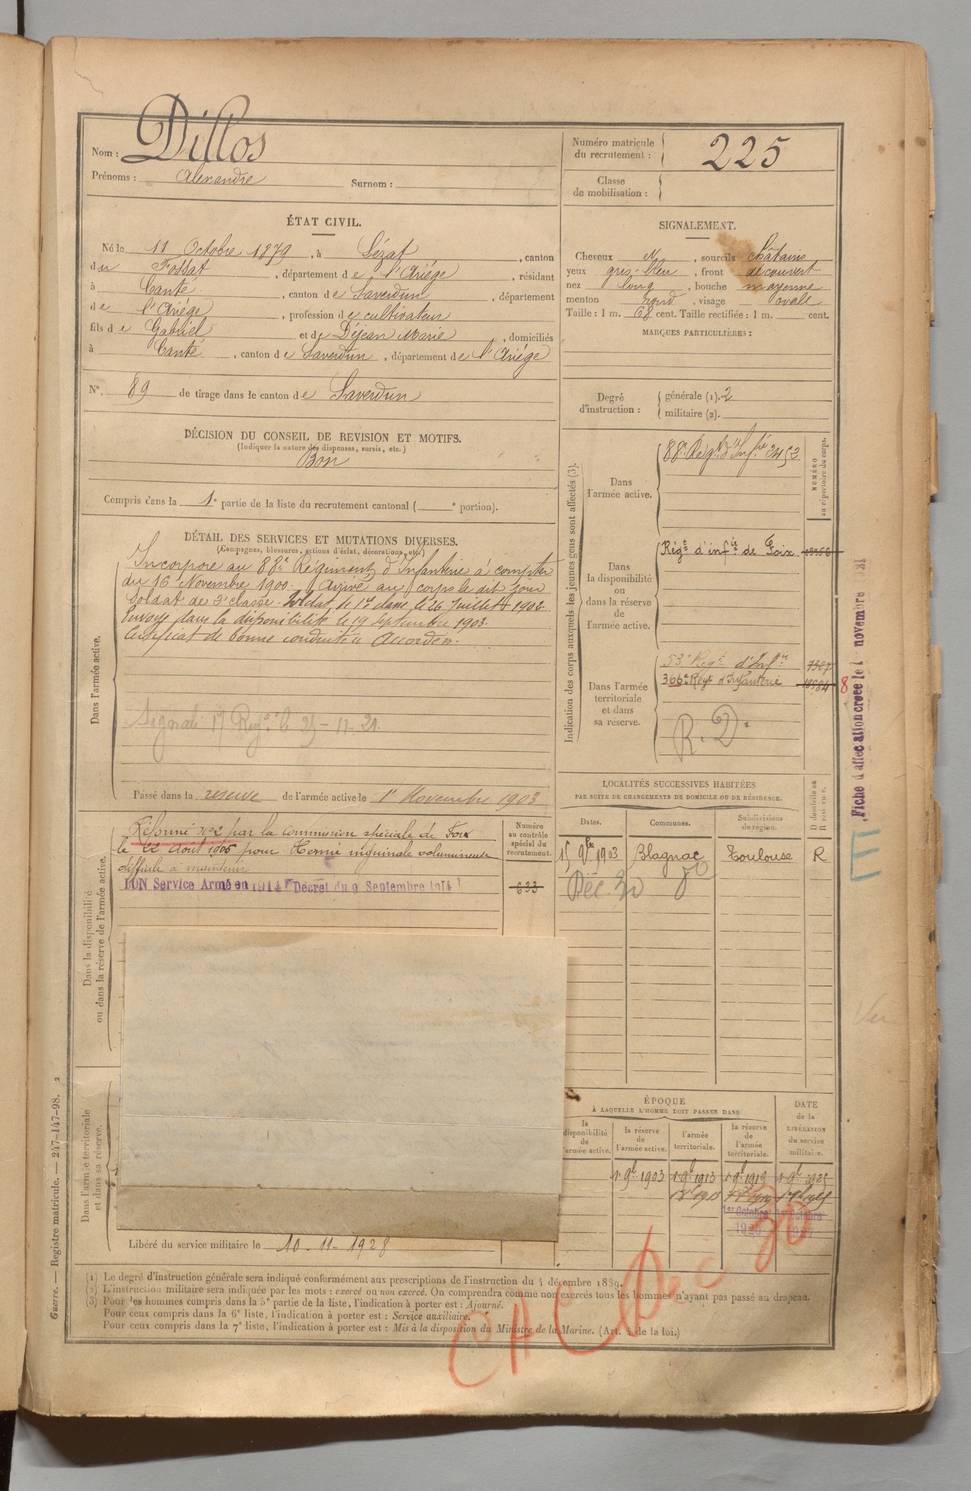 Nom : Dillos
Prénoms : Alexandre Surnom :
Numéro matricule du recrutement : 225
Classe de mobilisation :
ÉTAT CIVIL.
Né le 11 Octobre 1879, à Lézat, canton
du Fossat, département de l'Ariége, résidant
à Canté, canton de Saverdun, département
de l'Ariége, profession de cultivateur
fils de Gabriel et de Déjean Marie, domiciliés
à Canté, canton de Saverdun, département de l'Ariége
N° 89 de tirage dans le canton de Saverdun
DÉCISION DU CONSEIL DE REVISION ET MOTIFS.
(Indiquer la nature des dispenses, sursis, etc.)
Bon
Compris dans la 1e partie de la liste du recrutement cantonal ( e portion).
DÉTAIL DES SERVICES ET MUTATIONS DIVERSES.
(Campagnes, blessures, actions d'éclat, décorations, etc.)
Dans l'armée active.
Incorporé au 88e Régiment d'Infanterie à compter
du 16 Novembre 1900. Arrivé au corps le dit jour
Soldat de 2e classe. Soldat de 1re classe le 26 Juillet 1902.
Envoyé dans la disponibilité le 19 Septembre 1903.
Certificat de bonne conduite Accordé.
Passé dans la reserve de l'armée active le 1er Novembre 1903
SIGNALEMENT.
Cheveux N, sourcils châtains
yeux gris-bleu, front découvert
nez long, bouche moyenne
menton rond, visage ovale
Taille : 1 m. 68 cent. Taille rectifiée : 1 m. cent.
MARQUES PARTICULIÈRES :
Degré d'instruction :
générale (1). 2
militaire (2).
Indication des corps auxquels les jeunes gens sont affectés (3).
NUMÉRO au répertoire du corps.
Dans l'armée active.
88e Régt d'Infie 2452
Dans la disponibilité ou dans la réserve de l'armée active.
Régt d'infie de Foix
Dans l'armée territoriale et dans sa réserve.
53e Regt d'Infie
366e Régt d'Infanterie
R.D.
Fiche d'affectation créée le 1 novembre
LOCALITÉS SUCCESSIVES HABITÉES
PAR SUITE DE CHANGEMENTS DE DOMICILE OU DE RÉSIDENCE.
Dates. Communes. Subdivisions de région. D domicile ou R résidence.
15 9bre 1903 Blagnac Toulouse R
E
Dans la disponibilité ou dans la réserve de l'armée active.
Numéro au contrôle spécial du recrutement.
Réformé n°2 par la commission spéciale de Foix
le 22 Août 1905 pour Hernie inguinale volumineuse
difficile à maintenir
BON Service Armé en 1914 Décret du 9 Septembre 1914
633
Dans l'armée territoriale et dans sa réserve.
ÉPOQUE
À LAQUELLE L'HOMME DOIT PASSER DANS
la disponibilité de l'armée active. la réserve de l'armée active. l'armée territoriale. la réserve de l'armée territoriale. DATE de la LIBÉRATION du service militaire.
1 9bre 1903 1 9bre 1913 1 9bre 1919 1 9bre 1925
Libéré du service militaire le 10-11-1928
CAC
(1) Le degré d'instruction générale sera indiqué conformément aux prescriptions de l'instruction du 4 décembre 1889.
(2) L'instruction militaire sera indiquée par les mots : exercé ou non exercé. On comprendra comme non exercés tous les hommes n'ayant pas passé au drapeau.
(3) Pour les hommes compris dans la 5e partie de la liste, l'indication à porter est : Ajourné.
Pour ceux compris dans la 6e liste, l'indication à porter est : Service auxiliaire.
Pour ceux compris dans la 7e liste, l'indication à porter est : Mis à la disposition du Ministre de la Marine. (Art. 4 de la loi.)
Guerre. — Registre matricule. — 247-147-98. 2